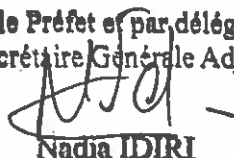 le Préfet et par délég
crétaire Générale Ad
Nadia IDIRI